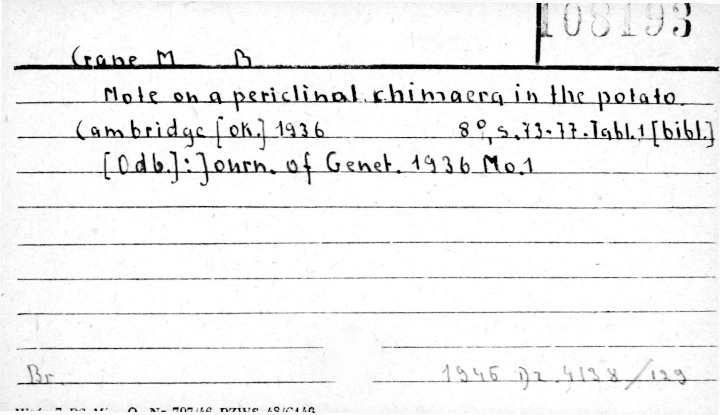 108193
Crane M B
Note on a periclinal chimaera in the potato.
Cambridge [ok.] 1936 8°, s. 73-77. Tabl. 1 [bibl.]
[Odb.]: Journ. of Genet. 1936 No. 1
Br. 1946 Dz. 4138/129